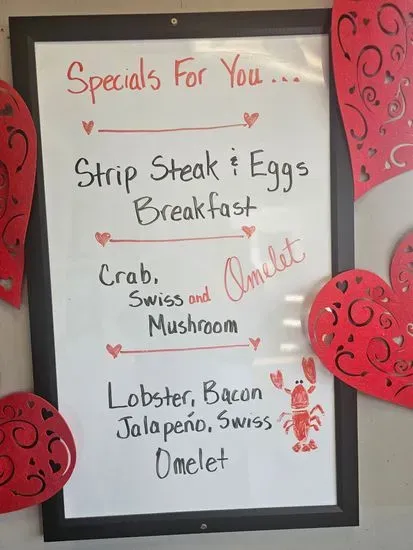 Specials For You...
Strip Steak & Eggs
Breakfast
Crab,
Swiss and Omelet
Mushroom
Lobster, Bacon
Jalapeño, Swiss
Omelet